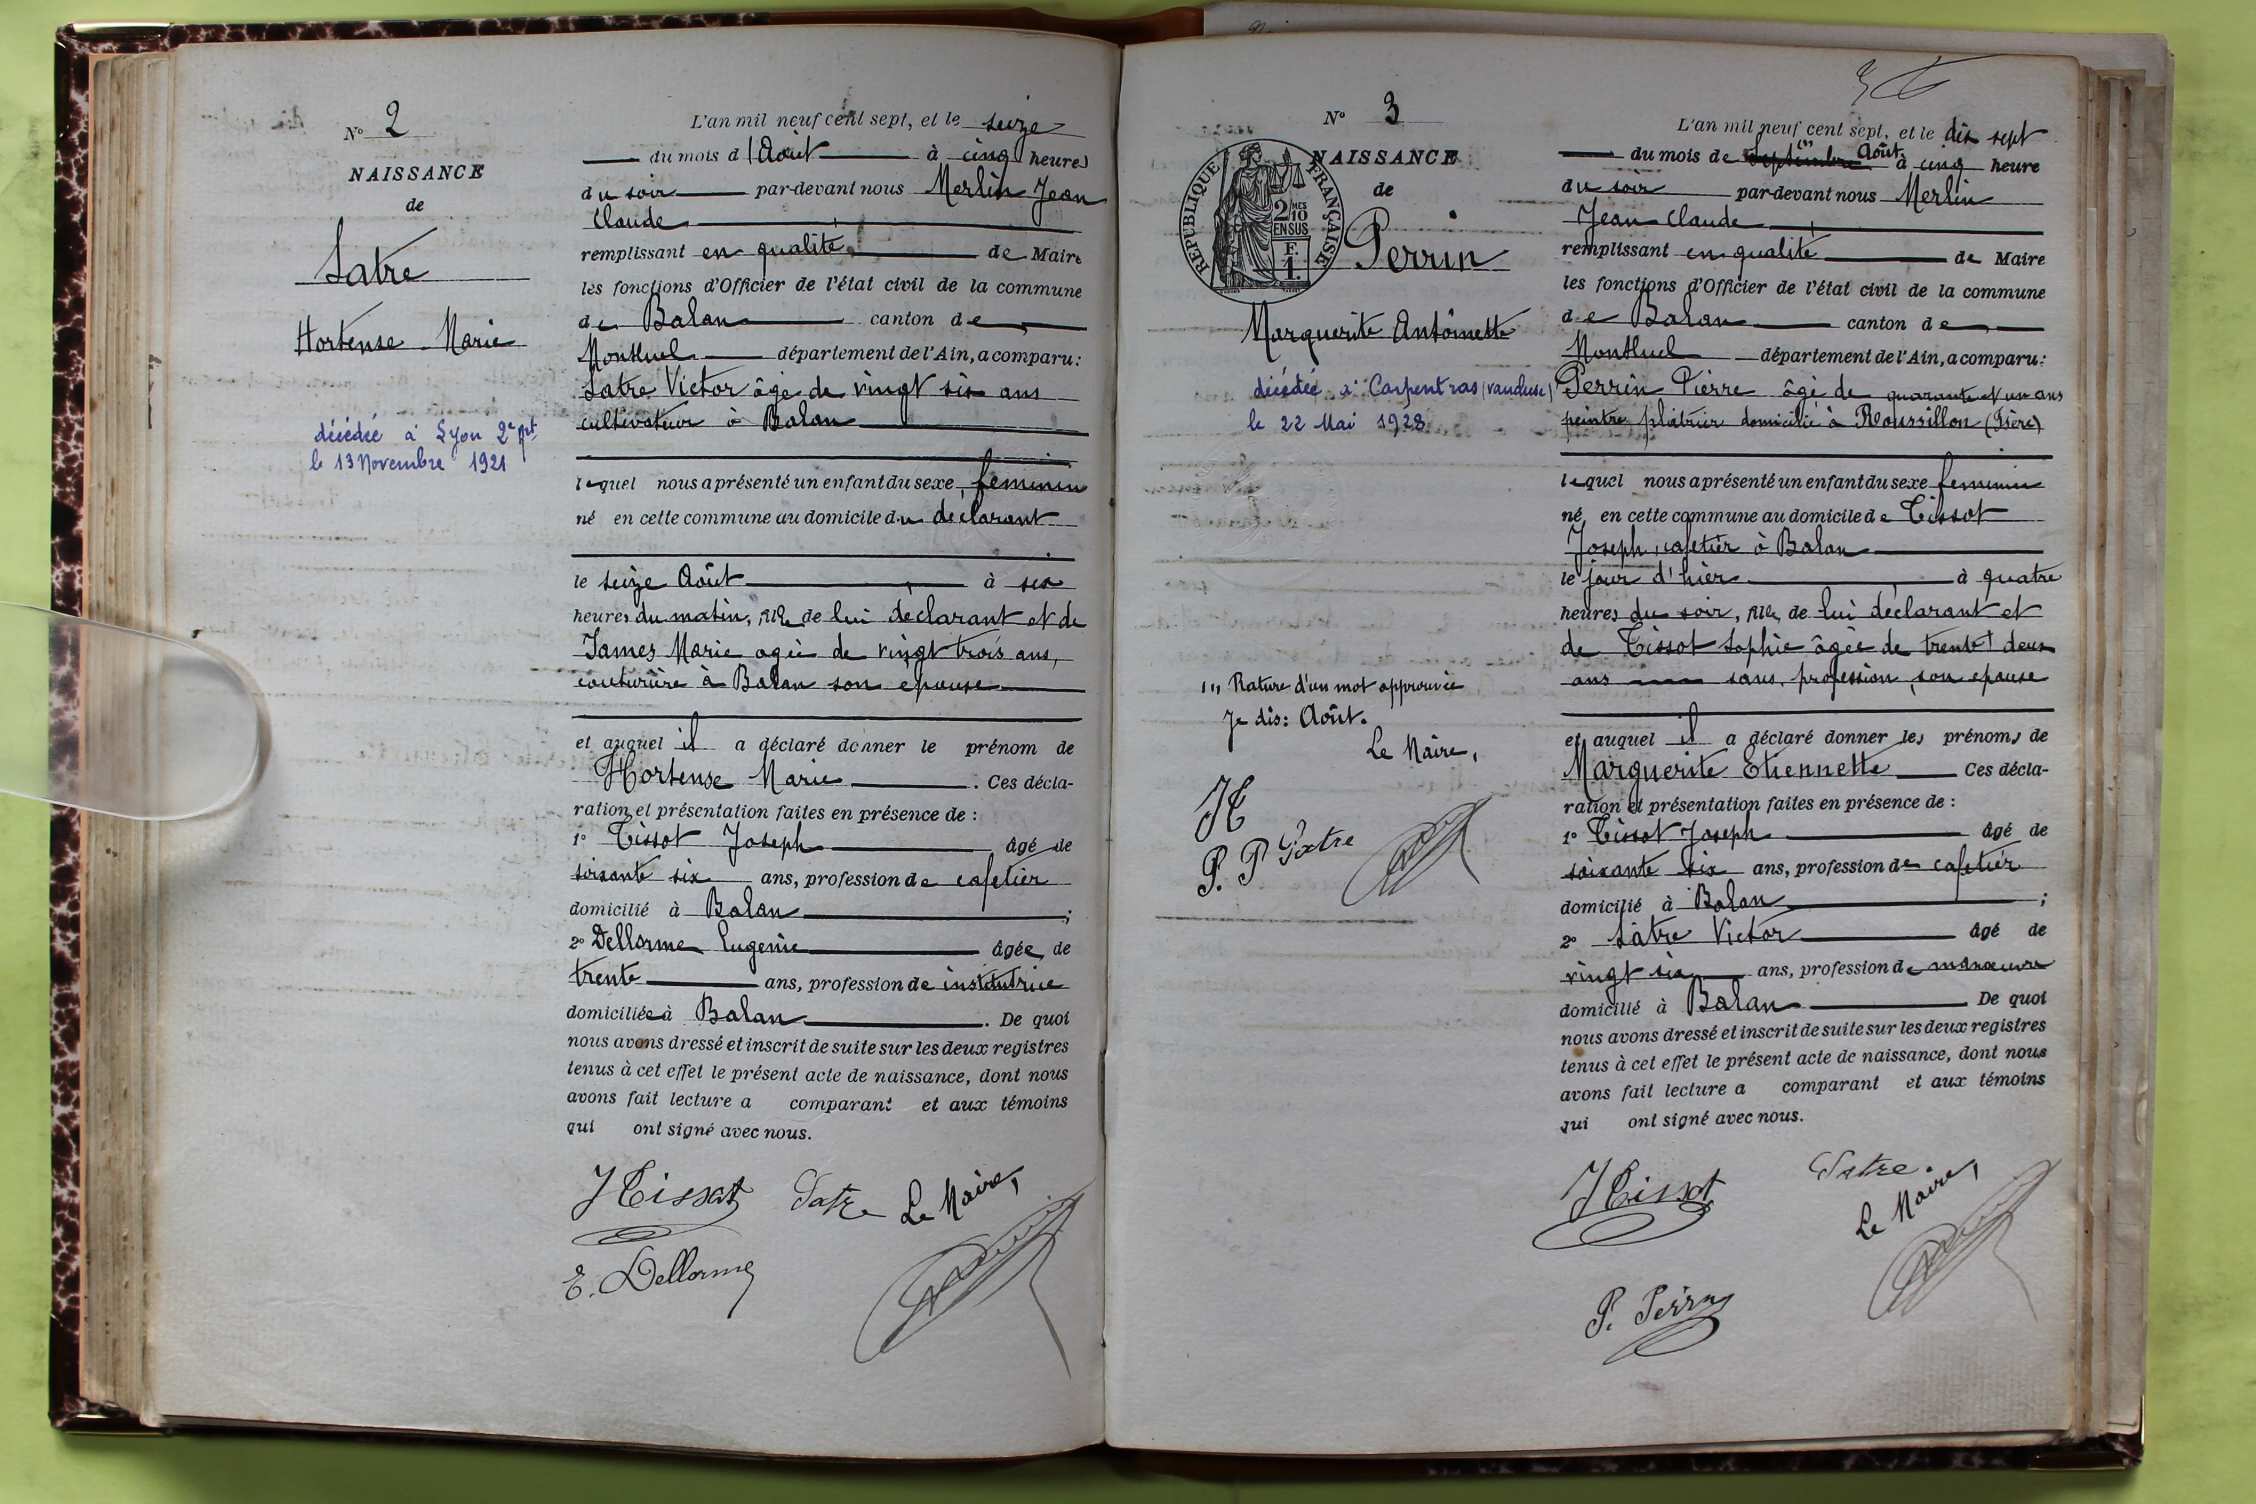 N° 2
NAISSANCE
de
Satre
Hortense Marie
décédée à Lyon 2e Art
le 13 Novembre 1921
L'an mil neuf cent sept, et le seize
du mois d'Août à cinq heures
du soir par-devant nous Merlin Jean
Claude
remplissant en qualité de Maire
les fonctions d'Officier de l'état civil de la commune
de Balan canton de
Montluel département de l'Ain, a comparu:
Satre Victor âgé de vingt six ans
cultivateur à Balan
lequel nous a présenté un enfant du sexe féminin
né en cette commune au domicile du déclarant
le seize Août à six
heures du matin, fille de lui déclarant et de
James Marie agée de vingt trois ans,
couturière à Balan son epouse
et auquel il a déclaré donner le prénom de
Hortense Marie. Ces décla-
ration et présentation faites en présence de :
1° Tissot Joseph âgé de
soixante six ans, profession de cafetier
domicilié à Balan ;
2° Dellorme Eugenie âgée de
trente ans, profession de institutrice
domiciliée à Balan. De quoi
nous avons dressé et inscrit de suite sur les deux registres
tenus à cet effet le présent acte de naissance, dont nous
avons fait lecture a comparant et aux témoins
qui ont signé avec nous.
J Tissot Satre Le Maire,
E. Dellorme
N° 3
NAISSANCE
de
RÉPUBLIQUE FRANÇAISE
2/10 MES
EN SUS
F.
1.
Perrin
Marguerite Antoinette
décédée à Carpentras (Vaucluse)
le 22 Mai 1928
1,, Rature d'un mot approuvée
Je dis: Août.
Le Maire,
JT
P. P Satre
L'an mil neuf cent sept, et le dix sept
du mois de Septembre (1) Août à cinq heure
du soir par-devant nous Merlin
Jean Claude
remplissant en qualité de Maire
les fonctions d'Officier de l'état civil de la commune
de Balan canton de
Montluel département de l'Ain, a comparu:
Perrin Pierre âgé de quarante et un ans
peintre plâtrier domicilié à Roussillon (Isère)
lequel nous a présenté un enfant du sexe feminin
né en cette commune au domicile de Tissot
Joseph, cafetier à Balan
le jour d'hier à quatre
heures du soir, fille de lui déclarant et
de Tissot Sophie âgée de trente deux
ans sans profession, son epouse
et auquel il a déclaré donner les prénoms de
Marguerite Etiennette Ces décla-
ration et présentation faites en présence de :
1° Tissot Joseph âgé de
soixante six ans, profession de cafetier
domicilié à Balan ;
2° Satre Victor âgé de
vingt six ans, profession de manœuvre
domicilié à Balan De quoi
nous avons dressé et inscrit de suite sur les deux registres
tenus à cet effet le présent acte de naissance, dont nous
avons fait lecture a comparant et aux témoins
qui ont signé avec nous.
J Tissot Satre.
Le Maire,
P. Perrin